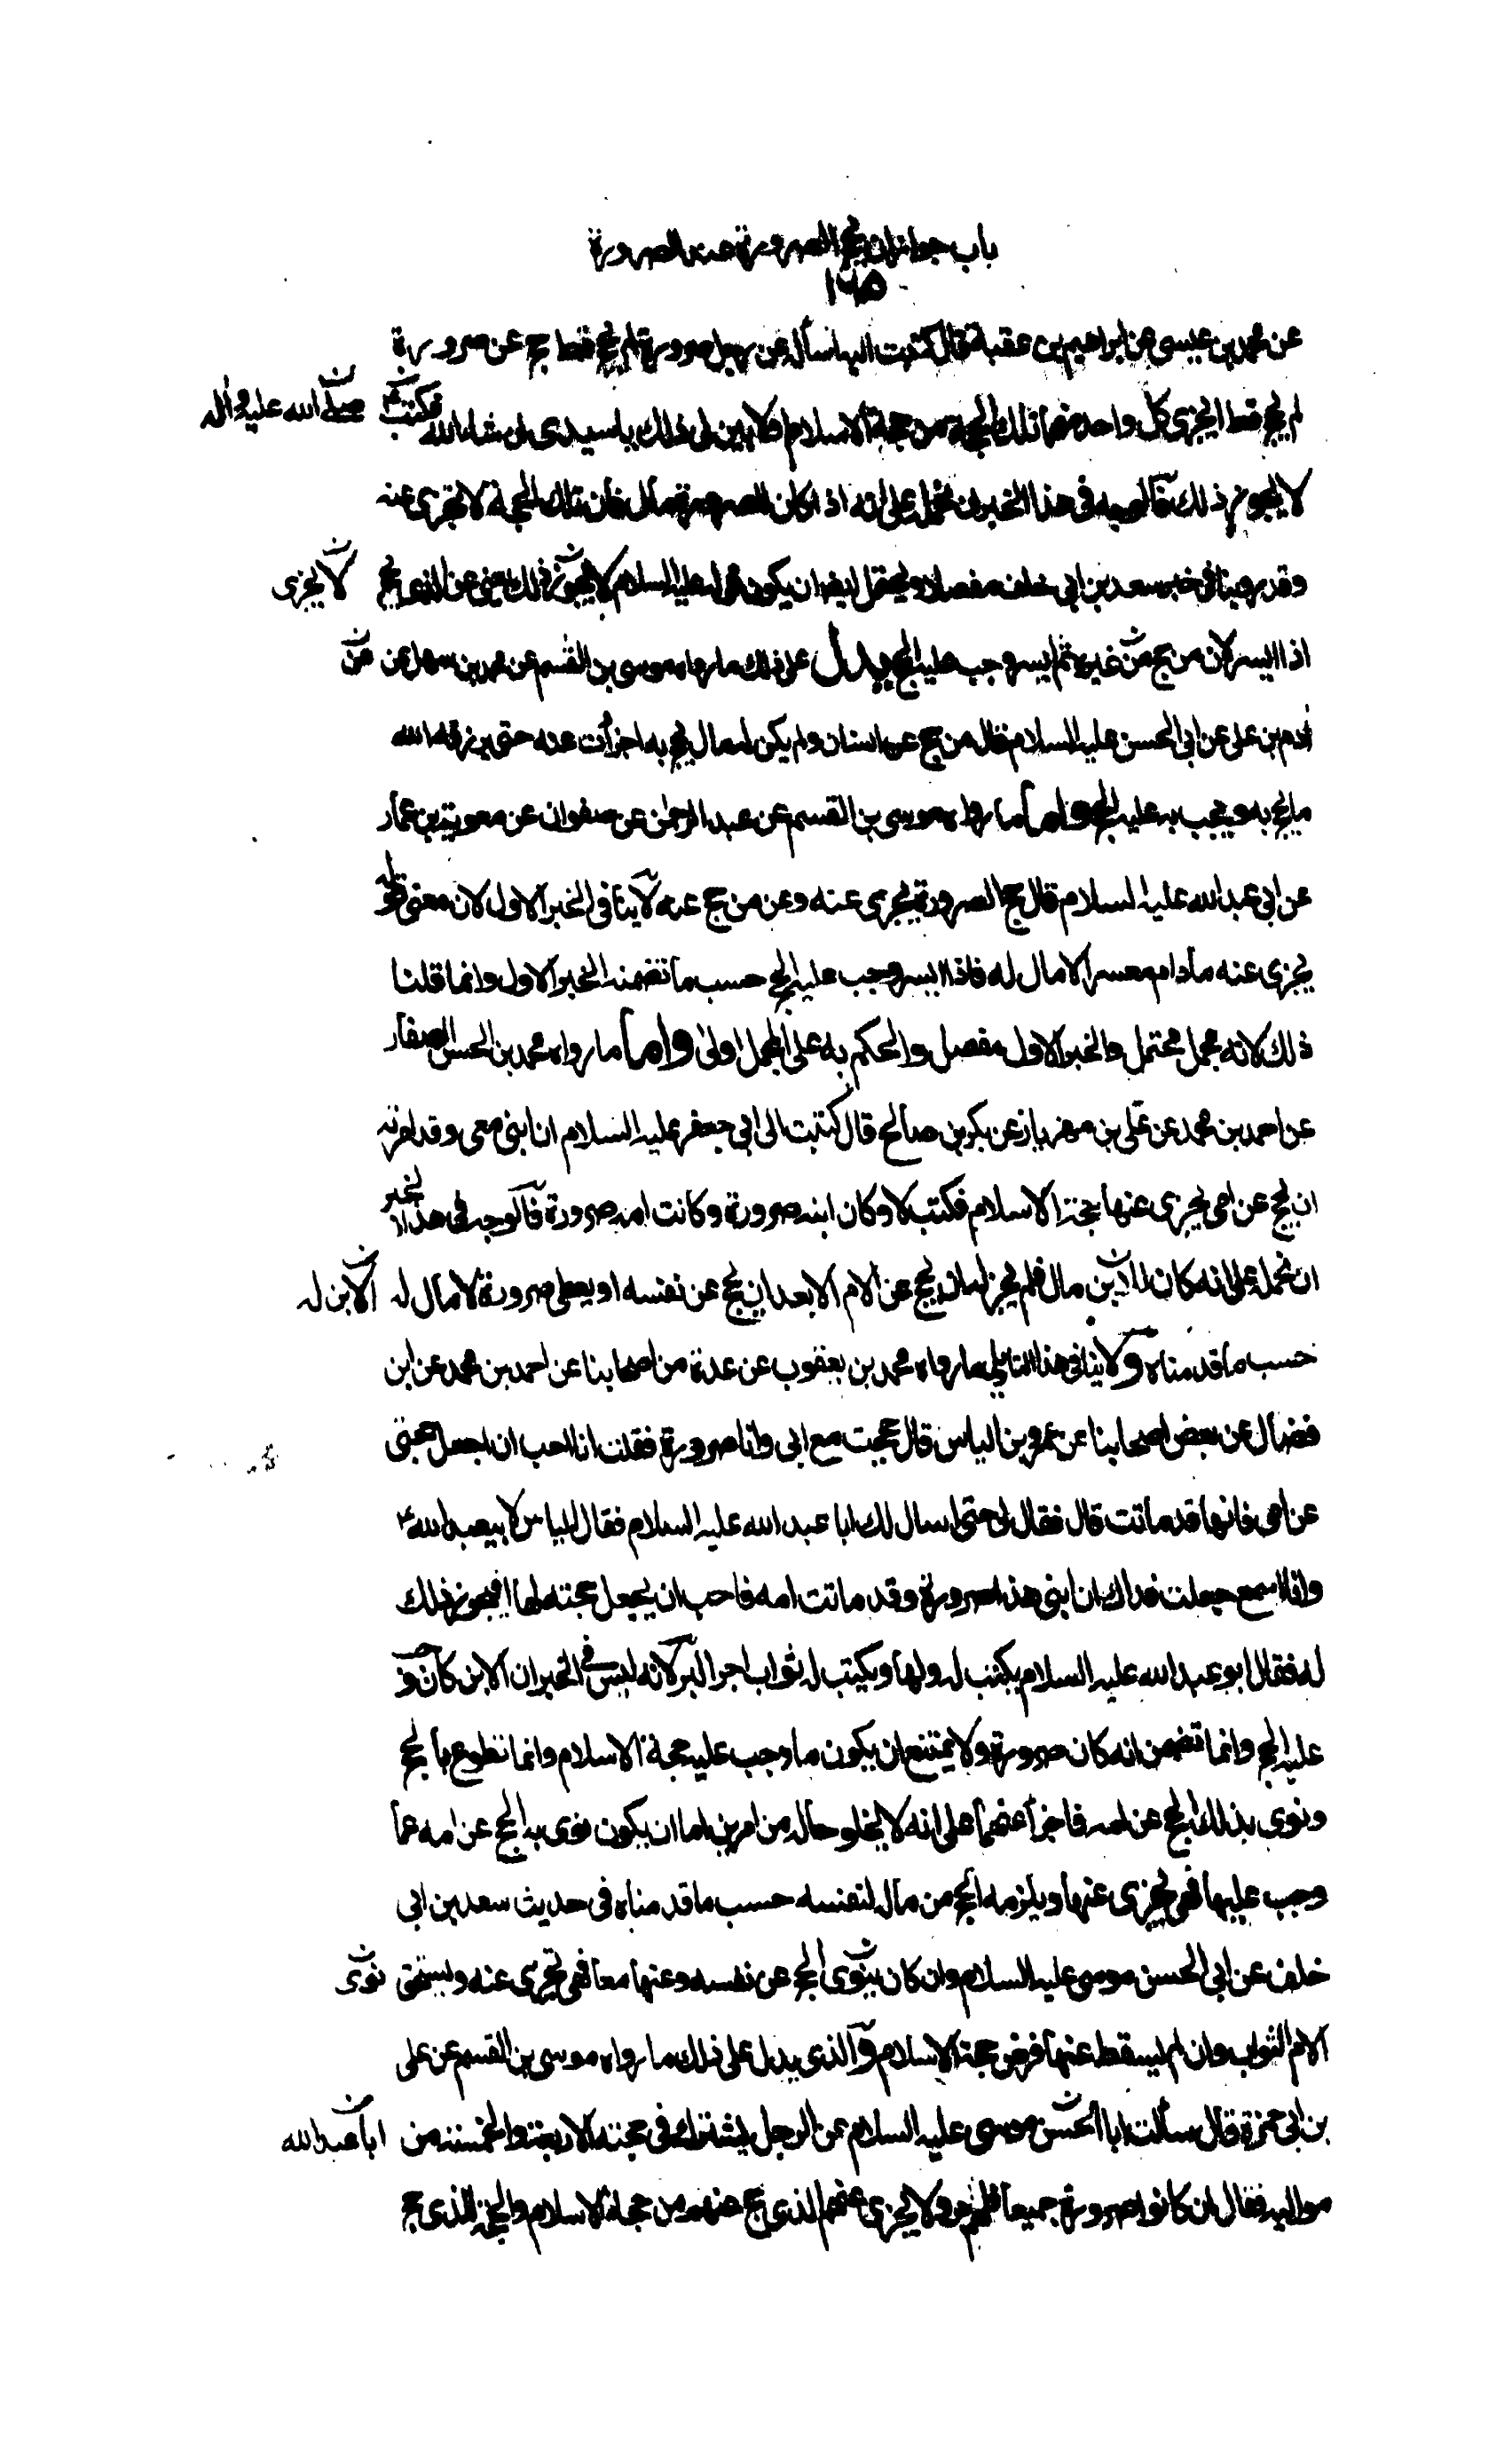 باب جواز ان يحج الصرورة عن الصرورة
١٦٥
عن محمد بن عيسى عن ابراهيم بن عقبة قال كتبت اليه اسأله عن رجل صرورة لم يحج قط حج عن صرورة
لم يحج قط ايجزى كل واحد منهما تلك الحجة من حجة الاسلام او لا بين لى ذلك يا سيدى ان شاء الله فكتب ع
صلى الله عليه واله
لا يجوز ذلك فالوجه فى هذا الخبر ان نحمله على انه اذا كان للصرورة مال فان تلك الحجة لا تجزى عنه
وقد روينا فى خبر سعد بن ابى خلف مفصلا ويحتمل ايضا ان يكون قوله عليه السلام لا يجوز ذلك يعنى عن الذى يحج
لا يجزى
اذا ايسر لان من حج عن غيره ثم ايسر وجب عليه الحج يدل على ذلك ما رواه موسى بن القسم عن محمد بن سهل عن
عن
آدم بن على عن ابى الحسن عليه السلام قال من حج عن انسان ولم يكن له مال يحج به اجزأت عنه حتى يرزقه الله
ما يحج به ويجب به عليه الحج واما ما رواه موسى بن القسم عن عبد الرحمن عن صفوان عن معوية بن عمار
عن ابى عبد الله عليه السلام قال حج الصرورة يجزى عنه وعن من حج عنه لا ينافى الخبر الاول لان معنى قوله
يجزى عنه ما دام معسرا لا مال له فاذا ايسر وجب عليه الحج حسب ما تضمنه الخبر الاول وانما قلنا
ذلك لانه مجمل محتمل والخبر الاول مفصل والحكم به على المجمل اولى واما ما رواه محمد بن الحسن الصفار
عن احمد بن محمد عن على بن مهزيار عن بكر بن صالح قال كتبت الى ابى جعفر عليه السلام ان ابنى معى وقد امرته
ان يحج عن امى ايجزى عنها حجة الاسلام فكتب لا وكان ابنه صرورة وكانت امه صرورة فالوجه فى هذا الخبر
ان نحمله على انه كان للابن مال فلم يجز له ان يحج عن الام الا بعد ان يحج عن نفسه او يعطى صرورة لا مال له
الابن له
حسب ما قدمناه ولا ينافى هذا التاويل ما رواه محمد بن يعقوب عن عدة من اصحابنا عن احمد بن محمد عن ابن
فضال عن بعض اصحابنا عن عمرو بن الياس قال حججت مع ابى وانا صرورة فقلت انا احب ان اجعل حجتى
عن امى فانها قد ماتت قال فقال لى حتى اسال لك ابا عبد الله عليه السلام فقال الياس لابى عبد الله ع
وانا اسمع جعلت فداك ان ابنى هذا صرورة وقد ماتت امه فاحب ان يجعل حجته لها افيجوز ذلك
له فقال ابو عبد الله عليه السلام يكتب له ولها ويكتب له ثواب اجر البر لانه ليس فى الخبر ان الابن كان وجب
عليه الحج وانما تضمن انه كان صرورة ولا يمتنع ان يكون ما وجب عليه حجة الاسلام وانما تطوع بالحج
ونوى بذلك الحج عن امه فاجزأ عنهما على انه لا يخلو حاله من امرين اما ان يكون نوى به الحج عن امه عما
وجب عليها فهى تجزى عنها ويلزمه الحج من ماله لنفسه حسب ما قدمناه فى حديث سعد بن ابى
خلف عن ابى الحسن موسى عليه السلام وان كان ينوى الحج عن نفسه وعنها معا فهى تجزى عنه وتستحق
نوى
الام الثواب وان لم يسقط عنها فرض حجة الاسلام والذى يدل على ذلك ما رواه موسى بن القسم عن على
بن ابى حمزة قال سألت ابا الحسن موسى عليه السلام عن الرجل يشترك فى حجته الاربعة والخمسة من
ابا عبد الله
مواليه فقال ان كانوا صرورة جميعا فلهم اجر ولا يجزى عنهم الذى حج عنهم من حجة الاسلام والحجة للذى حج